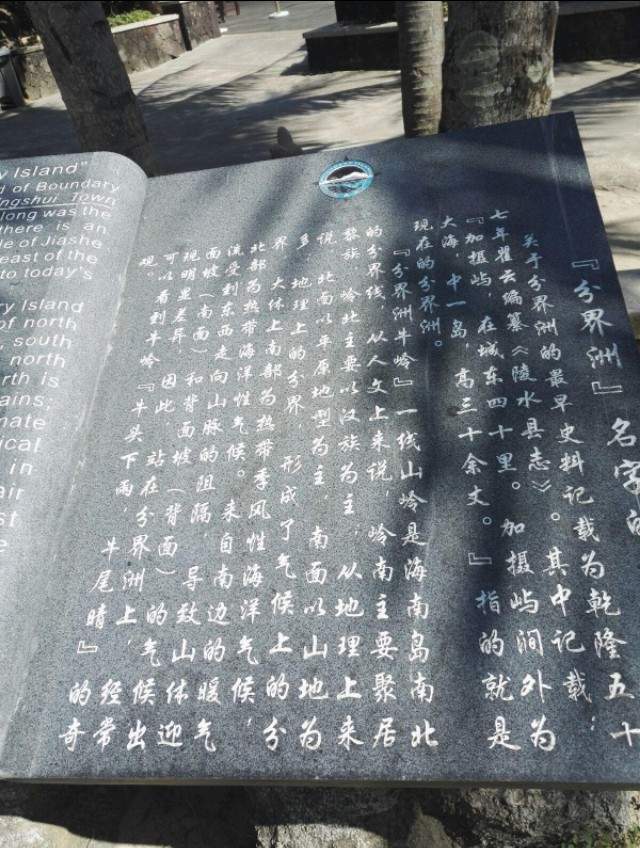 y Island"
d of Boundary
ngshui Town
long was the
there is an
de of Jiashe
east of the
to today's
ry Island
of north
south
north
rth is
ains;
mate
ical
in
air
st
e
『分界洲』名字的
关于分界洲的最早史料记载为乾隆五十
七年瞿云编纂《陵水县志》。其中记载:
『加摄屿,在城东四十里。加摄屿涧外为
大海,中一岛,高三十余丈。』指的就是
现在的分界洲。
『分界洲牛岭』一线山岭是海南岛南北
的分界线,从人文上来说,岭南主要聚居
黎族,岭北主要以汉族为主;从地理上来
说,北面以平原地型为主,南面以山地为
多。地理上的分界,形成了气候上的分
界,大体上南部为热带季风性海洋气候,
北部为热带海洋性气候。来自南边的暖气
流受到东西走向山脉的阻隔,导致山体迎
面坡(南面)和背面坡(背面)的气候出
现明显差异。因此,站在分界洲上,经常
可以看到牛岭『牛头下雨,牛尾晴』的奇
观。